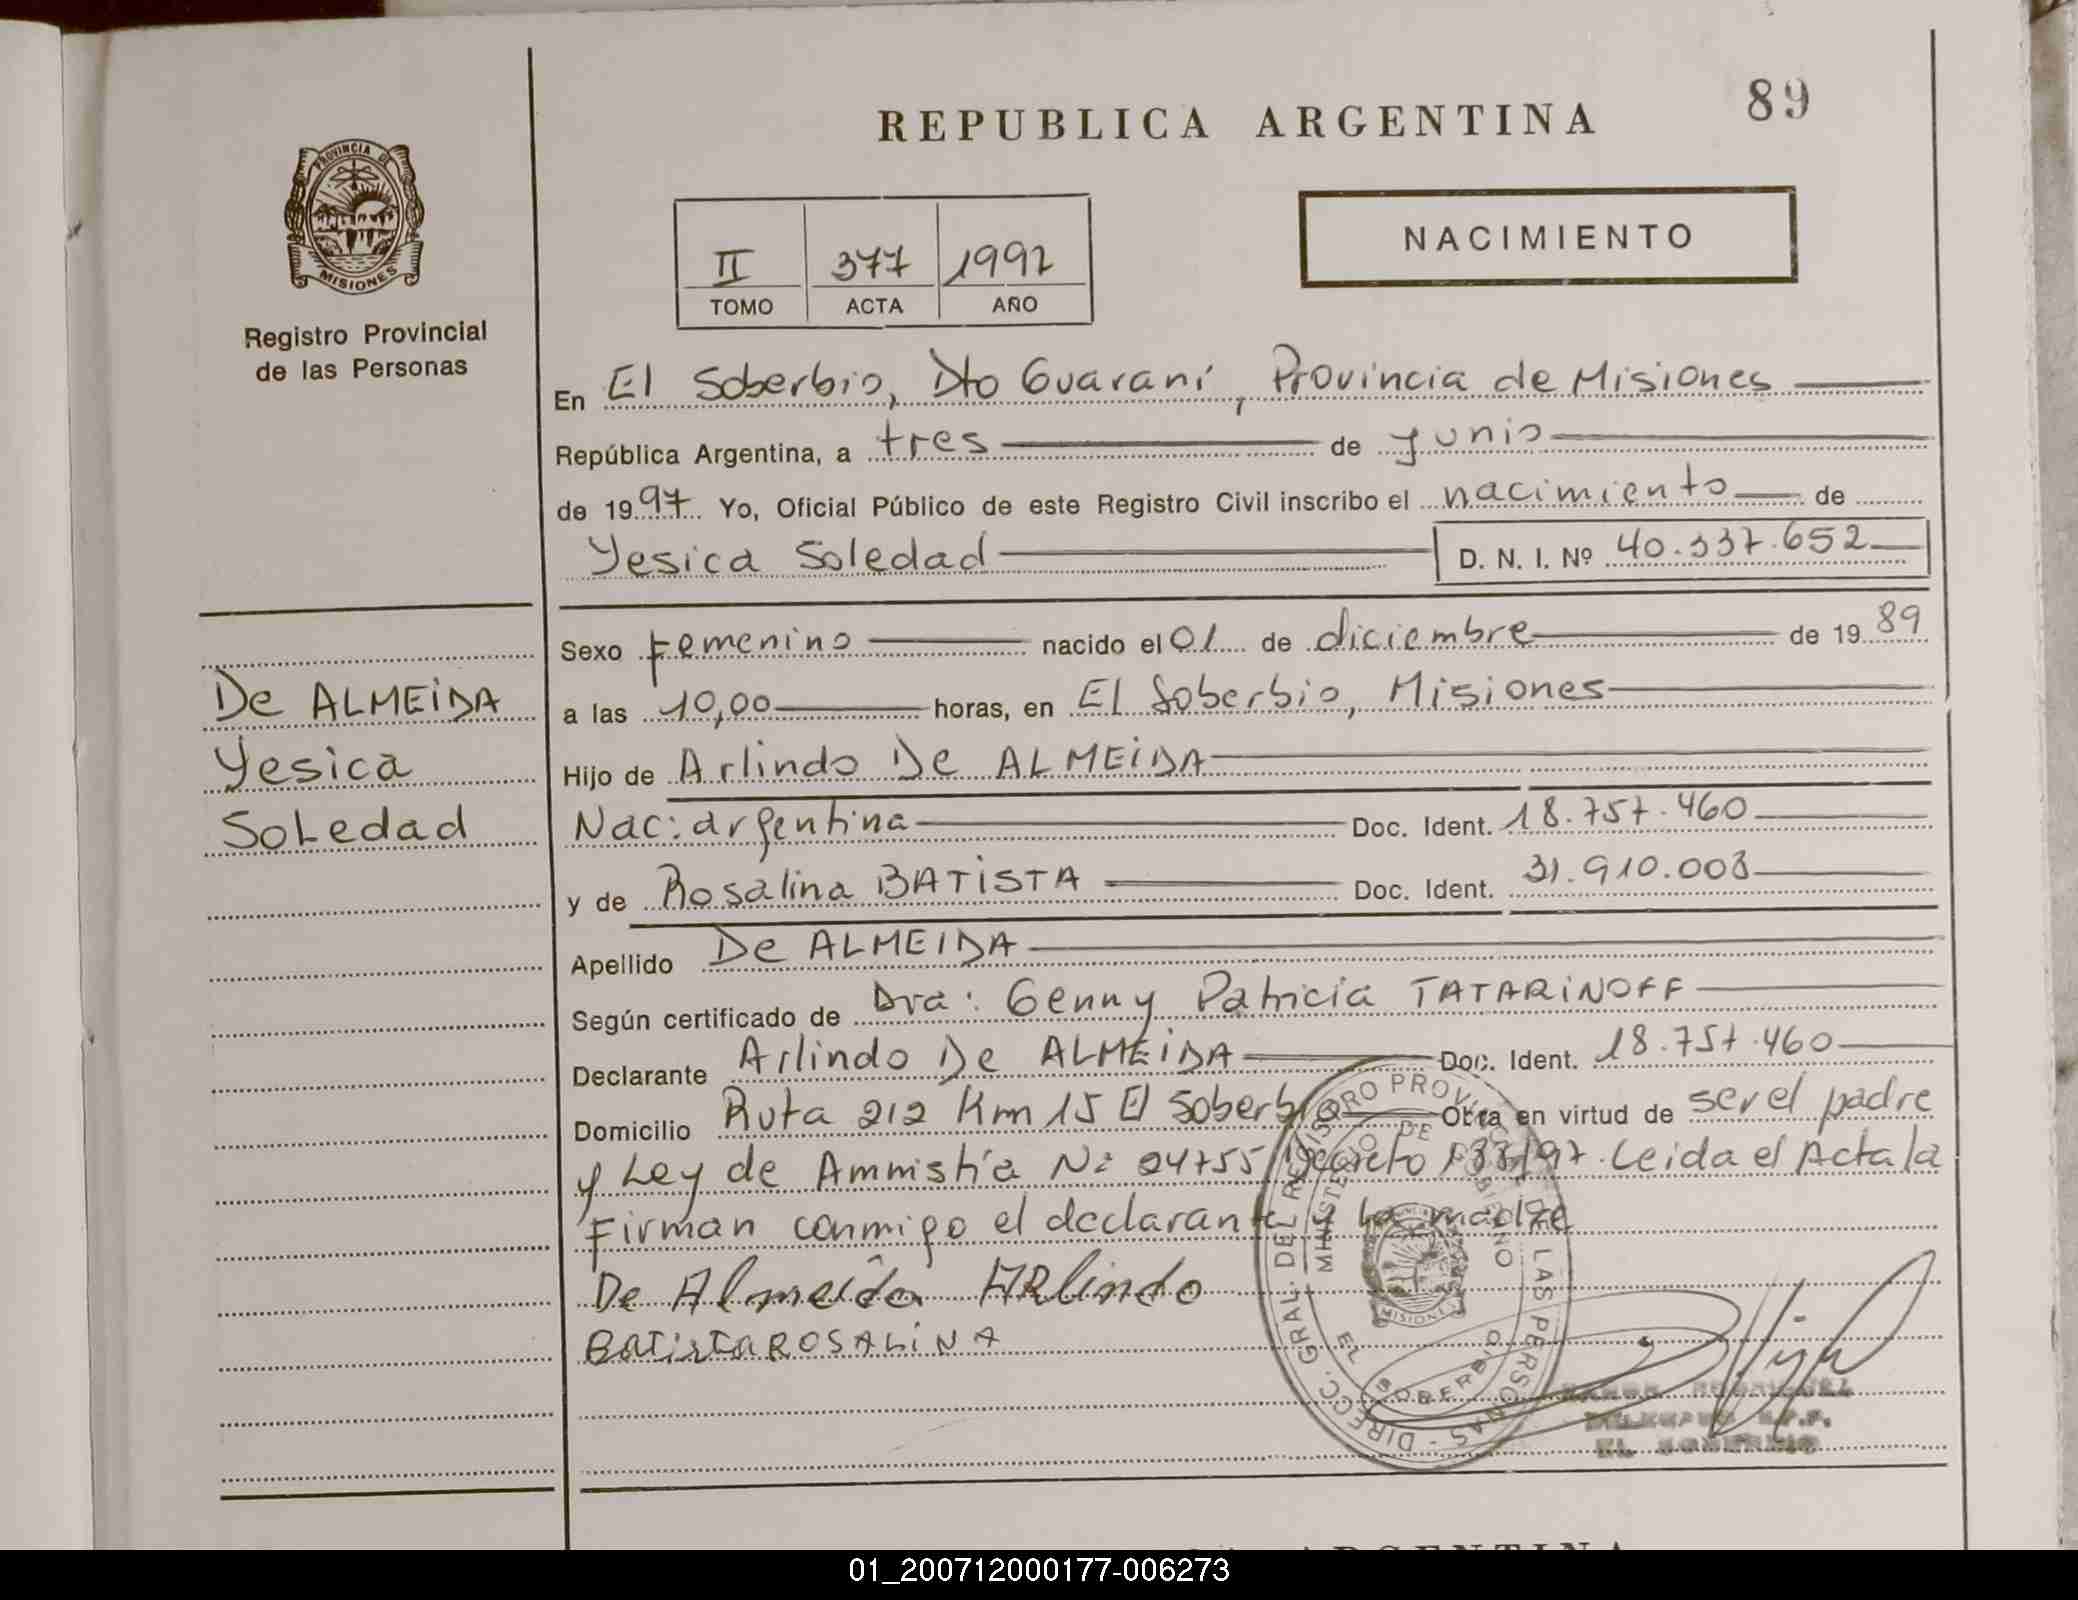 REPUBLICA ARGENTINA
89
PROVINCIA DE
MISIONES
Registro Provincial
de las Personas
II 377 1992
TOMO ACTA AÑO
NACIMIENTO
En El Soberbio, Dto Guaraní, Provincia de Misiones
República Argentina, a tres de junio
de 1997 Yo, Oficial Público de este Registro Civil inscribo el nacimiento de
Yesica Soledad D. N. I. Nº 40.337.652
Sexo Femenino nacido el 01 de diciembre de 1989
De ALMEIDA
Yesica
Soledad
a las 10,00 horas, en El Soberbio, Misiones
Hijo de Arlindo De ALMEIDA
Nac: argentina Doc. Ident. 18.757.460
y de Rosalina BATISTA Doc. Ident. 31.910.003
Apellido De ALMEIDA
Según certificado de Dra: Genny Patricia TATARINOFF
Declarante Arlindo De ALMEIDA Doc. Ident. 18.757.460
Domicilio Ruta 212 Km 15 El Soberbio Obra en virtud de ser el padre
y Ley de Ammistía Nº 24755 Decreto 133/97. Leida el Acta la
Firman conmigo el declarante y la madre
De Almeida ARlindo
Batista ROSALINA
DIRECC. GRAL. DEL REGISTRO PROVINCIAL DE LAS PERSONAS
MINISTERIO DE GOBIERNO
MISIONES
EL SOBERBIO
EL SOBERBIO
01_200712000177-006273